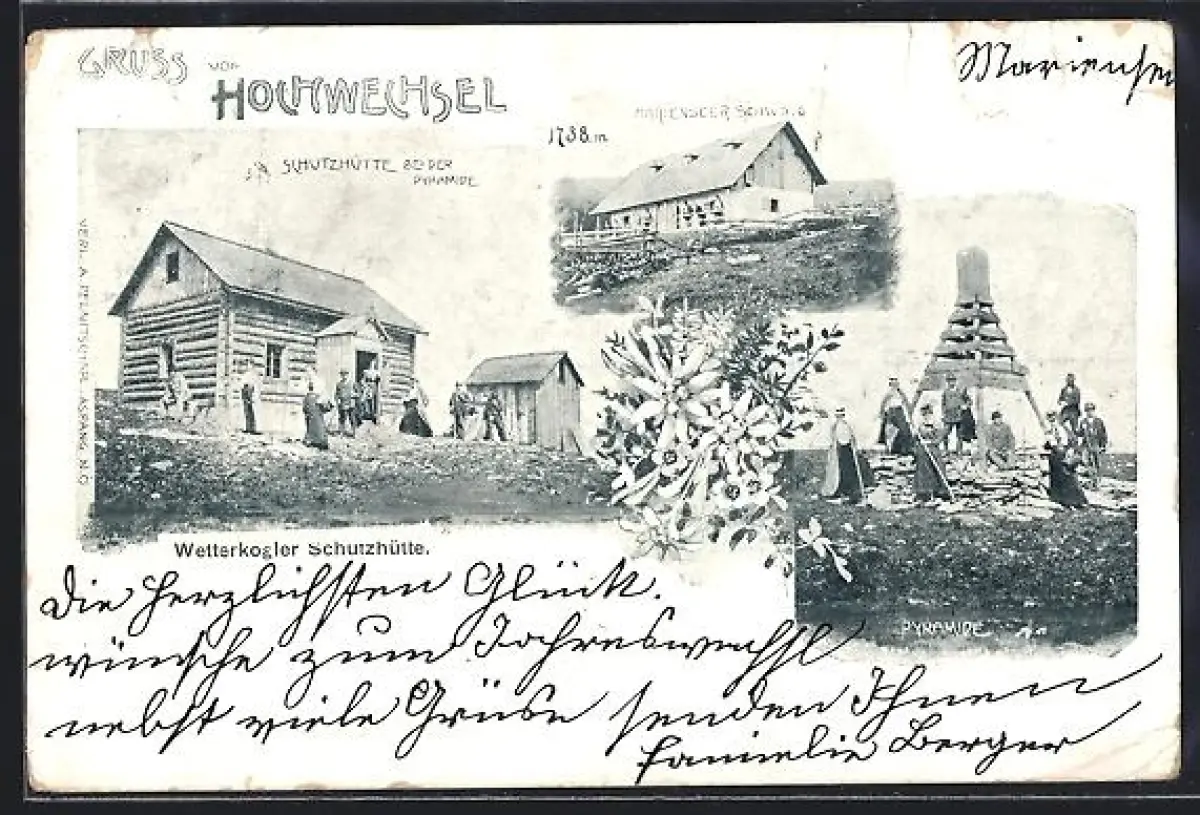 GRUSS VOM
HOCHWECHSEL
Mariensee
1738 m
MARIENSEER SCHWAIG
SCHUTZHÜTTE BEI DER
PYRAMIDE
VERL. A. ASPANG N.Ö.
Wetterkogler Schutzhütte.
PYRAMIDE
Die herzlichsten Glück.
wünsche zum Jahreswechsl
nebst viele Grüse senden Ihnen
Familie Berger